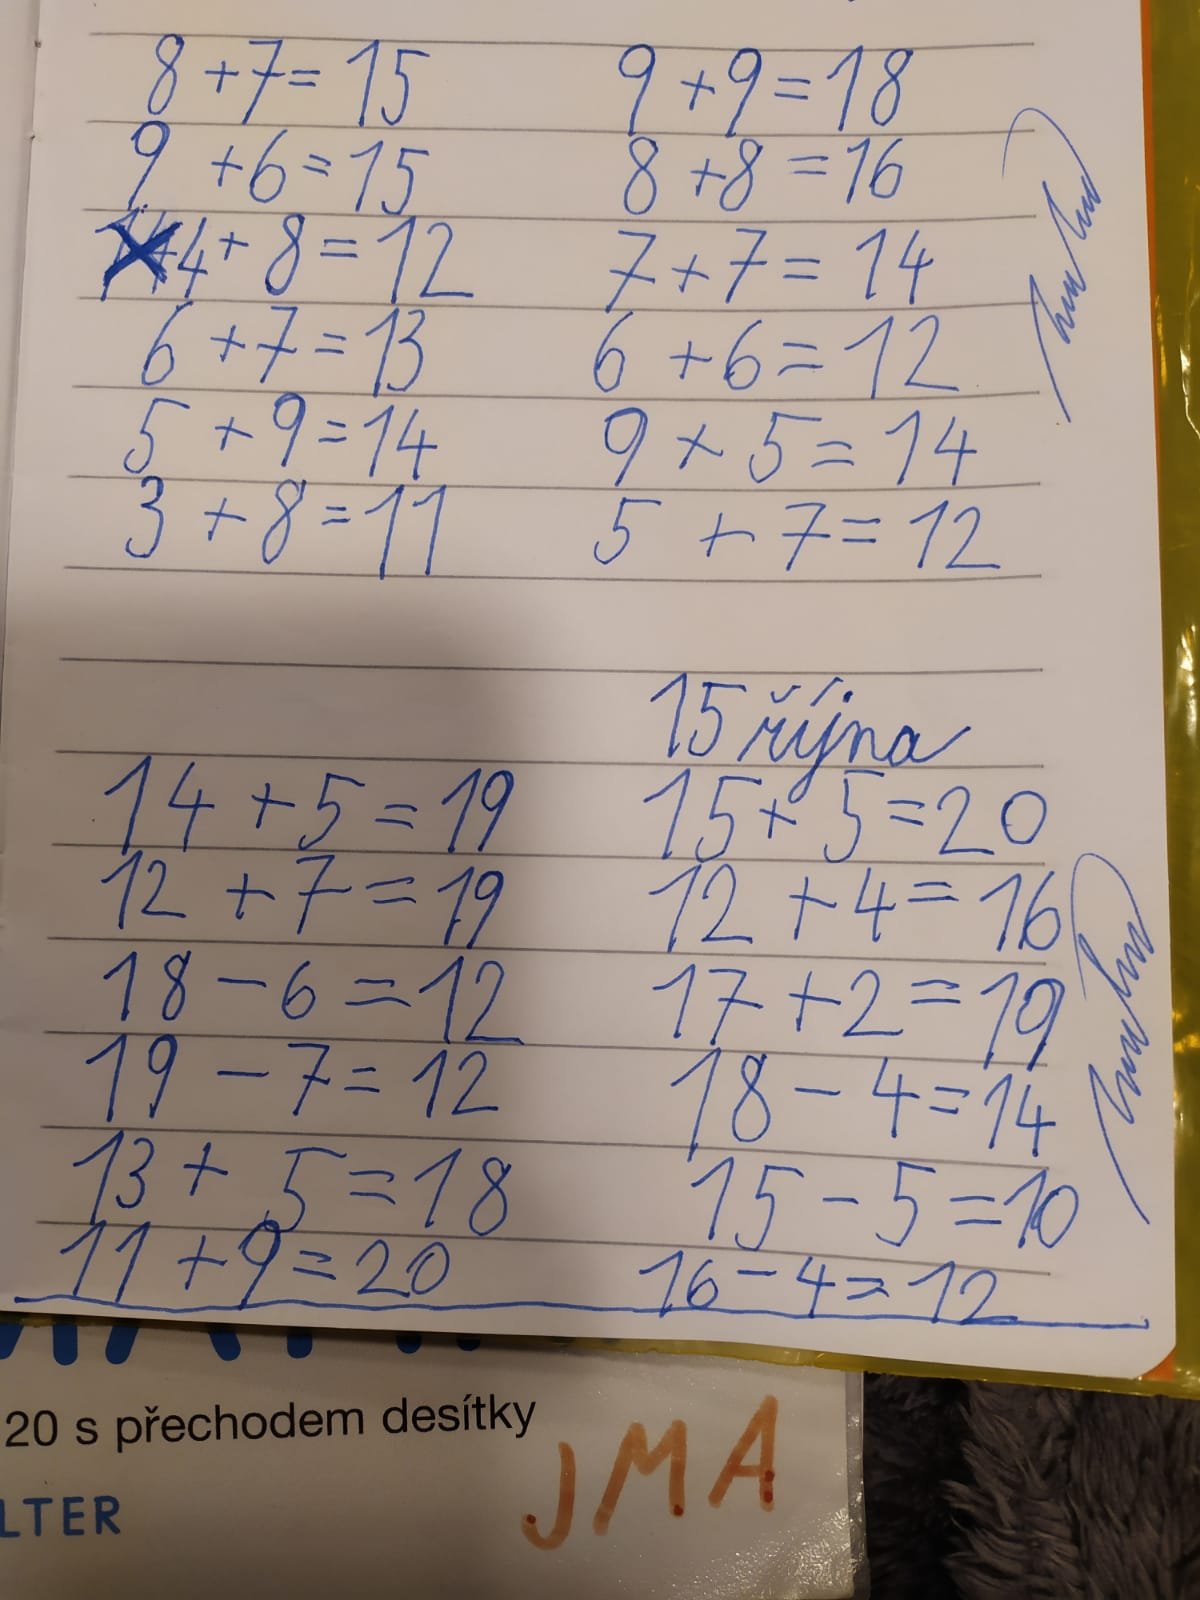 8+7=15 9+9=18
9+6=15 8+8=16
4+8=12 7+7=14
6+7=13 6+6=12
5+9=14 9+5=14
3+8=11 5+7=12
15 října
14+5=19 15+5=20
12+7=19 12+4=16
18-6=12 17+2=19
19-7=12 18-4=14
13+5=18 15-5=10
11+9=20 16-4=12
20 s přechodem desítky
LTER
JMA